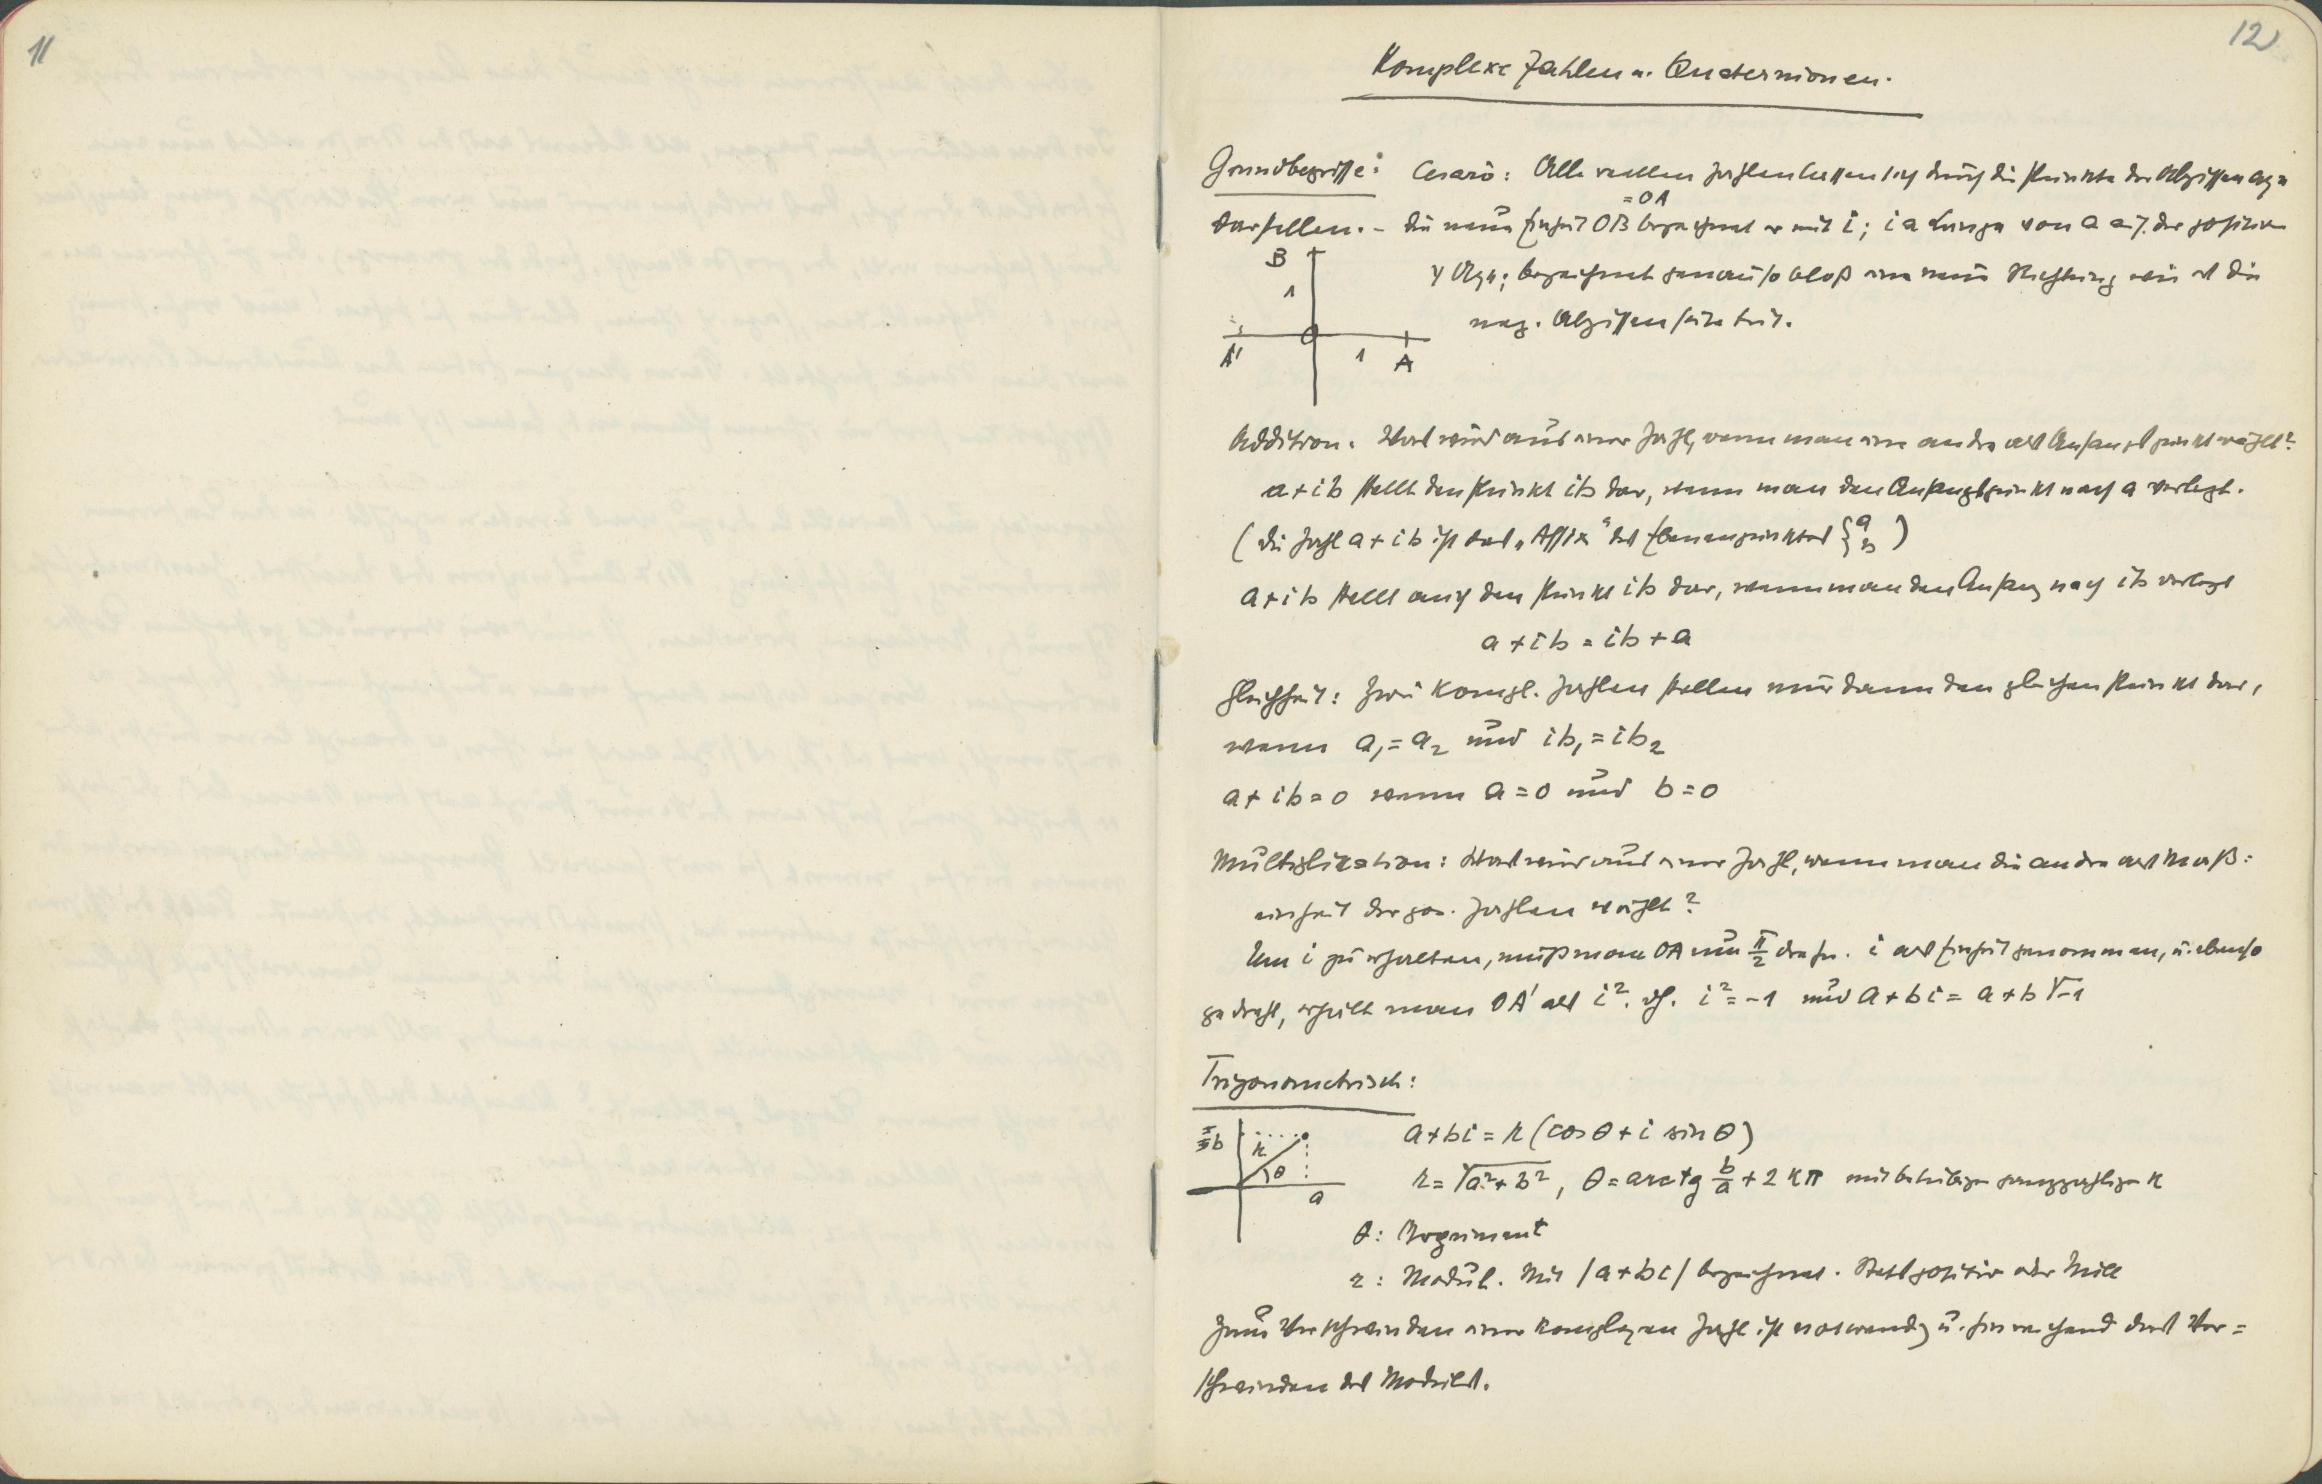 11
12
Komplexe Zahlen u. Quaternionen.
Grundbegriffe: Cesarò: Alle reellen Zahlen lassen sich durch die Punkte der Abzissenaxe
=OA
darstellen. – Die neue Einheit OB bezeichnet er mit i; ia Länge von a auf der positiven
y Axe; bezeichnet genau so bloß eine neue Richtung wie es die
neg. Abzissenseite tut.
B
1
O
A' 1 A
Addition. Was wird aus einer Zahl, wenn man eine andre als Anfangspunkt wählt?
a+ib stellt den Punkt ib dar, wenn man den Anfangspunkt nach a verlegt.
(die Zahl a+ib ist das „Affix“ des Ebenenpunktes { a b )
a+ib stellt auch den Punkt ib dar, wenn man den Anfang nach ib verlegt
a+ib = ib+a
Gleichheit: Zwei kompl. Zahlen stellen nur dann den gleichen Punkt dar,
wenn a₁=a₂ und ib₁=ib₂
a+ib=0 wenn a=0 und b=0
Multiplikation: Was wird aus einer Zahl, wenn man die andre als Maß:
einheit der pos. Zahlen wählt?
Um i zu erhalten, muß man OA um π/2 drehn. i als Einheit genommen, u. ebenso
gedreht, erhält man OA' als i². dh. i²=-1 und a+bi = a+b√-1
Trigonometrisch:
b r θ a
a+bi = r(cos θ + i sin θ)
r = √a²+b², θ = arctg b/a + 2kπ mit beliebigen ganzzahligen k
θ: Argument
r: Modul. Mit |a+bi| bezeichnet. Stets positiv oder Null
Zum Verschwinden einer komplexen Zahl ist notwendig u. hinreichend das Ver=
schwinden des Moduls.